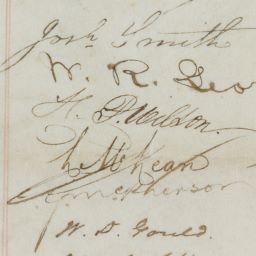 Josh Smith
W. R. Geo
H. P. Wilson.
McKean
McPherson
W. D. Gould.